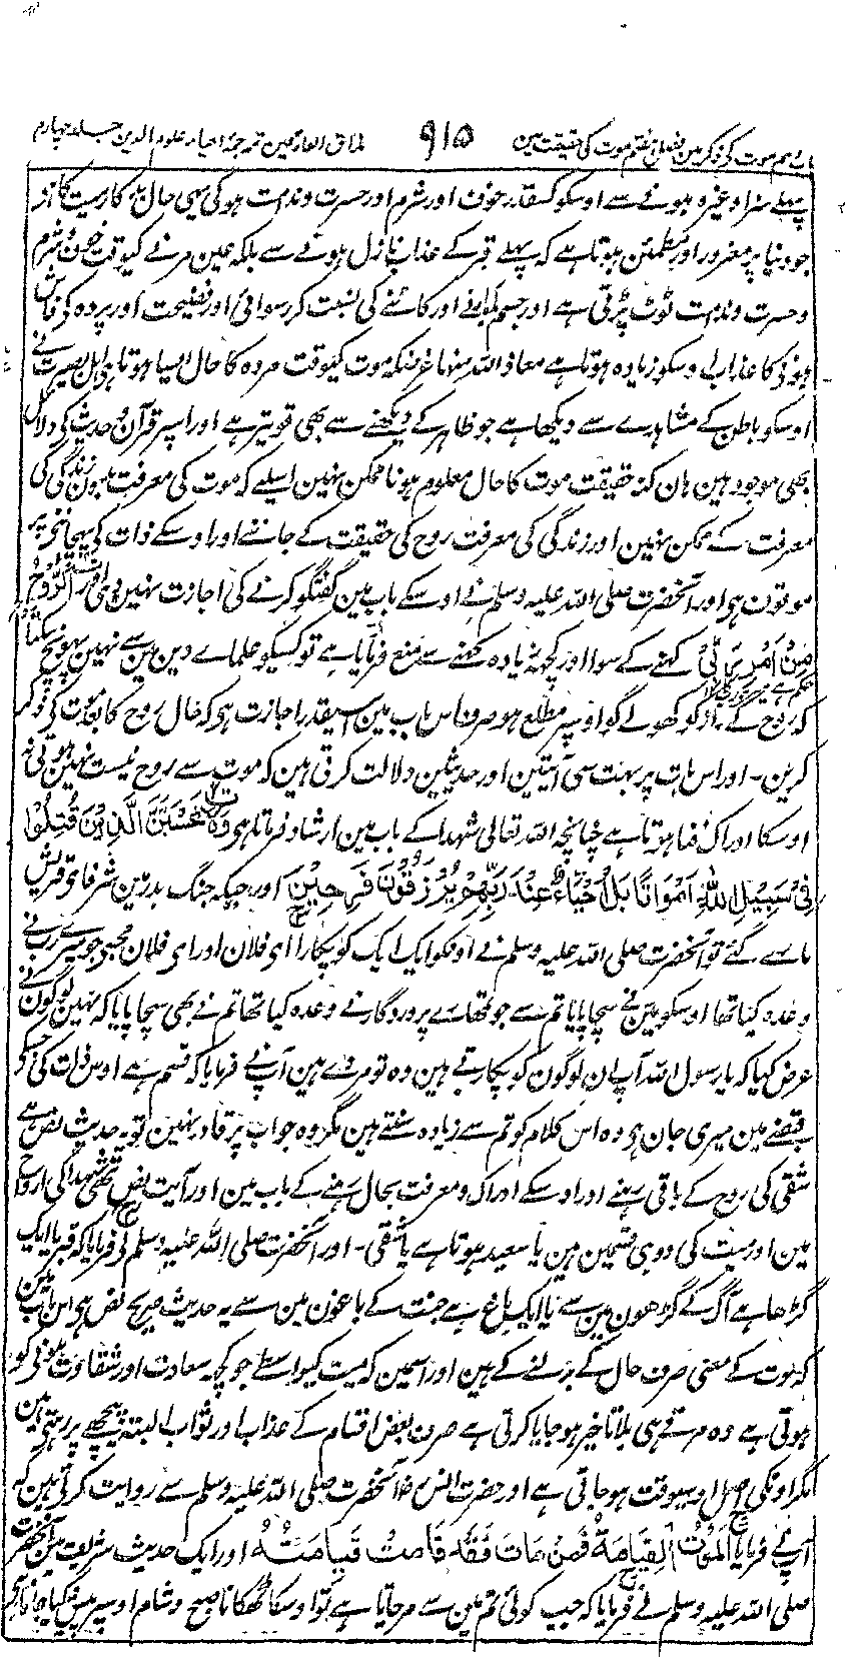 باب دہم موت کی ذکر مین فصل ہفتم موت کی حقیقت مین ۹۱۵ مذاق العارفین ترجمۂ احیاء علوم الدین جلد چہارم
پہلے سزا وغیرہ ہونے سے اوسکو کسقدر خوف اور شرم اور حسرت وندامت ہوگی یہی حال بدکار میت کا اور
جو دنیا پر مغرور اور مطمئن ہوتا ہے کہ پہلے قبر کے عذاب نازل ہونے سے بلکہ عین مرنے کیوقت خون شرم
وحسرت وندامت ٹوٹ پڑتی ہے اور جسم کو مارنے اور کاٹنے کی نسبت کر رسوائی اور فضیحت اور پردہ کی فاش
ہونیکا عذاب اوسکو زیادہ ہوتا ہے معاذ اللہ منہا غرضکہ موت کیوقت مردہ کا حال ایسا ہوتا ہے اہل بصیرت نے
اوسکو باطن کے مشاہدے سے دیکھا ہے جو ظاہر کے دیکھنے سے بھی قوی تر ہے اور اسپر قرآن وحدیث کی دلائل
بھی موجود ہین ہان کنہ حقیقت موت کا حال معلوم ہونا ممکن نہین اسلیے کہ موت کی معرفت بدون زندگی کی
معرفت کے ممکن نہین اور زندگی کی معرفت روح کی حقیقت کے جاننے اور اوسکے ذات کی پہچاننے پر
موقوف ہی اور آنحضرت صلی اللہ علیہ وسلم نے اوسکے باب مین گفتگو کرنے کی اجازت نہین دی اور الرُّوحُ
مِنْ أَمْرِ رَبِّيْ کہنے کے سوا اور کچھ زیادہ کہنے سے منع فرمایا ہے تو کسیکو علماے دین مین سے نہین پہونچ سکتا
کہ روح کے راز کو کھولے گو اوسپر مطلع ہو صرف اس باب مین اسیقدر اجازت ہی کہ حال روح کا بعد موت کی ذکر
کرین۔ اور اس بات پر بہت سی آیتین اور حدیثین دلالت کرتی ہین کہ موت سے روح نیست نہین ہوتی نہ
اوسکا ادراک فنا ہوتا ہے چنانچہ اللہ تعالی شہدا کے باب مین ارشاد فرماتا ہی وَلَا تَحْسَبَنَّ الَّذِيْنَ قُتِلُوْا
فِيْ سَبِيْلِ اللّٰهِ أَمْوَاتًا بَلْ أَحْيَاءٌ عِنْدَ رَبِّهِمْ يُرْزَقُوْنَ فَرِحِيْنَ اور جبکہ جنگ بدر مین شرفاے قریش
مارے گئے تو آنحضرت صلی اللہ علیہ وسلم نے اونکو ایک ایک کو پکارا ای فلان اور ای فلان مجہے جو میرے رب نے
وعدہ کیا تھا اوسکو مین نے سچا پایا تم سے جو تمھارے پروردگار نے وعدہ کیا تھا تم نے بھی سچا پایا کہ نہین لوگون نے
عرض کیا کہ یا رسول اللہ آپ ان لوگون کو پکارتے ہین وہ تو مردے ہین آپ نے فرمایا کہ قسم ہے اوس ذات کی جسکے
قبضے مین میری جان ہی وہ اس کلام کو تم سے زیادہ سنتے ہین مگر وہ جواب پر قادر نہین تو یہ حدیث نص ہے
شقی کی روح کے باقی رہنے اور اوسکے ادراک ومعرفت بحال رہنے کے باب مین اور آیت نص تھی شہدا کی ارواح
مین اور میت کی دو ہی قسمین ہین یا سعید ہوتا ہے یا شقی۔ اور آنحضرت صلی اللہ علیہ وسلم نے فرمایا کہ قبر یا ایک
گڑھا ہے آگ کے گڑھون مین سے یا ایک باغ ہے جنت کے باغون مین سے یہ حدیث صریح نص ہی اس باب مین
کہ موت کے معنی صرف حال کے بدلنے کے ہین اور اسمین کہ میت کیواسطے جو کچھ سعادت اور شقاوت ہونی کو
ہوتی ہے وہ مرتے ہی بلا تاخیر ہوجایا کرتی ہے صرف بعض اقسام کے عذاب اور ثواب البتہ پیچھے پر رہتی ہین
مگر اونکی اصل اوسیوقت ہوجاتی ہے اور حضرت انس رض آنحضرت صلی اللہ علیہ وسلم سے روایت کرتے ہین کہ
آپ نے فرمایا اَلْمَوْتُ الْقِيَامَةُ فَمَنْ مَاتَ فَقَدْ قَامَتْ قِيَامَتُهُ اور ایک حدیث شریف مین آنحضرت
صلی اللہ علیہ وسلم نے فرمایا کہ جب کوئی تم مین سے مرجاتا ہے تو اوسکا ٹھکانا صبح وشام اوسپر پیش کیا جاتا ہی